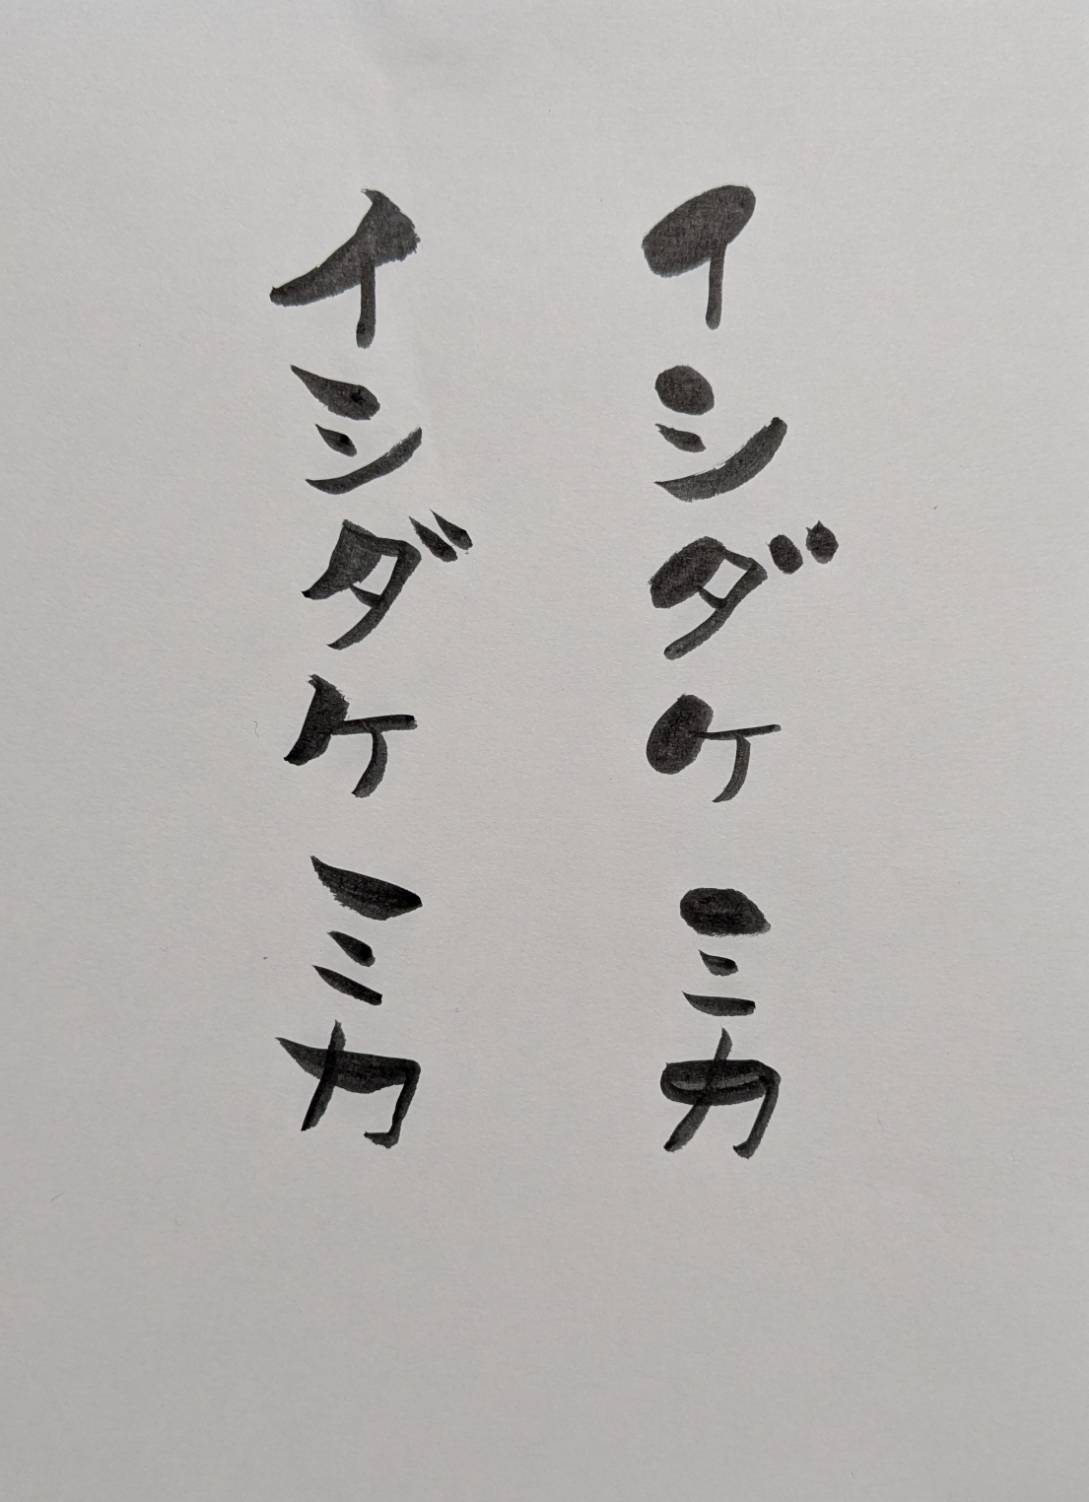 イシダケ ミカ
イシダケ ミカ